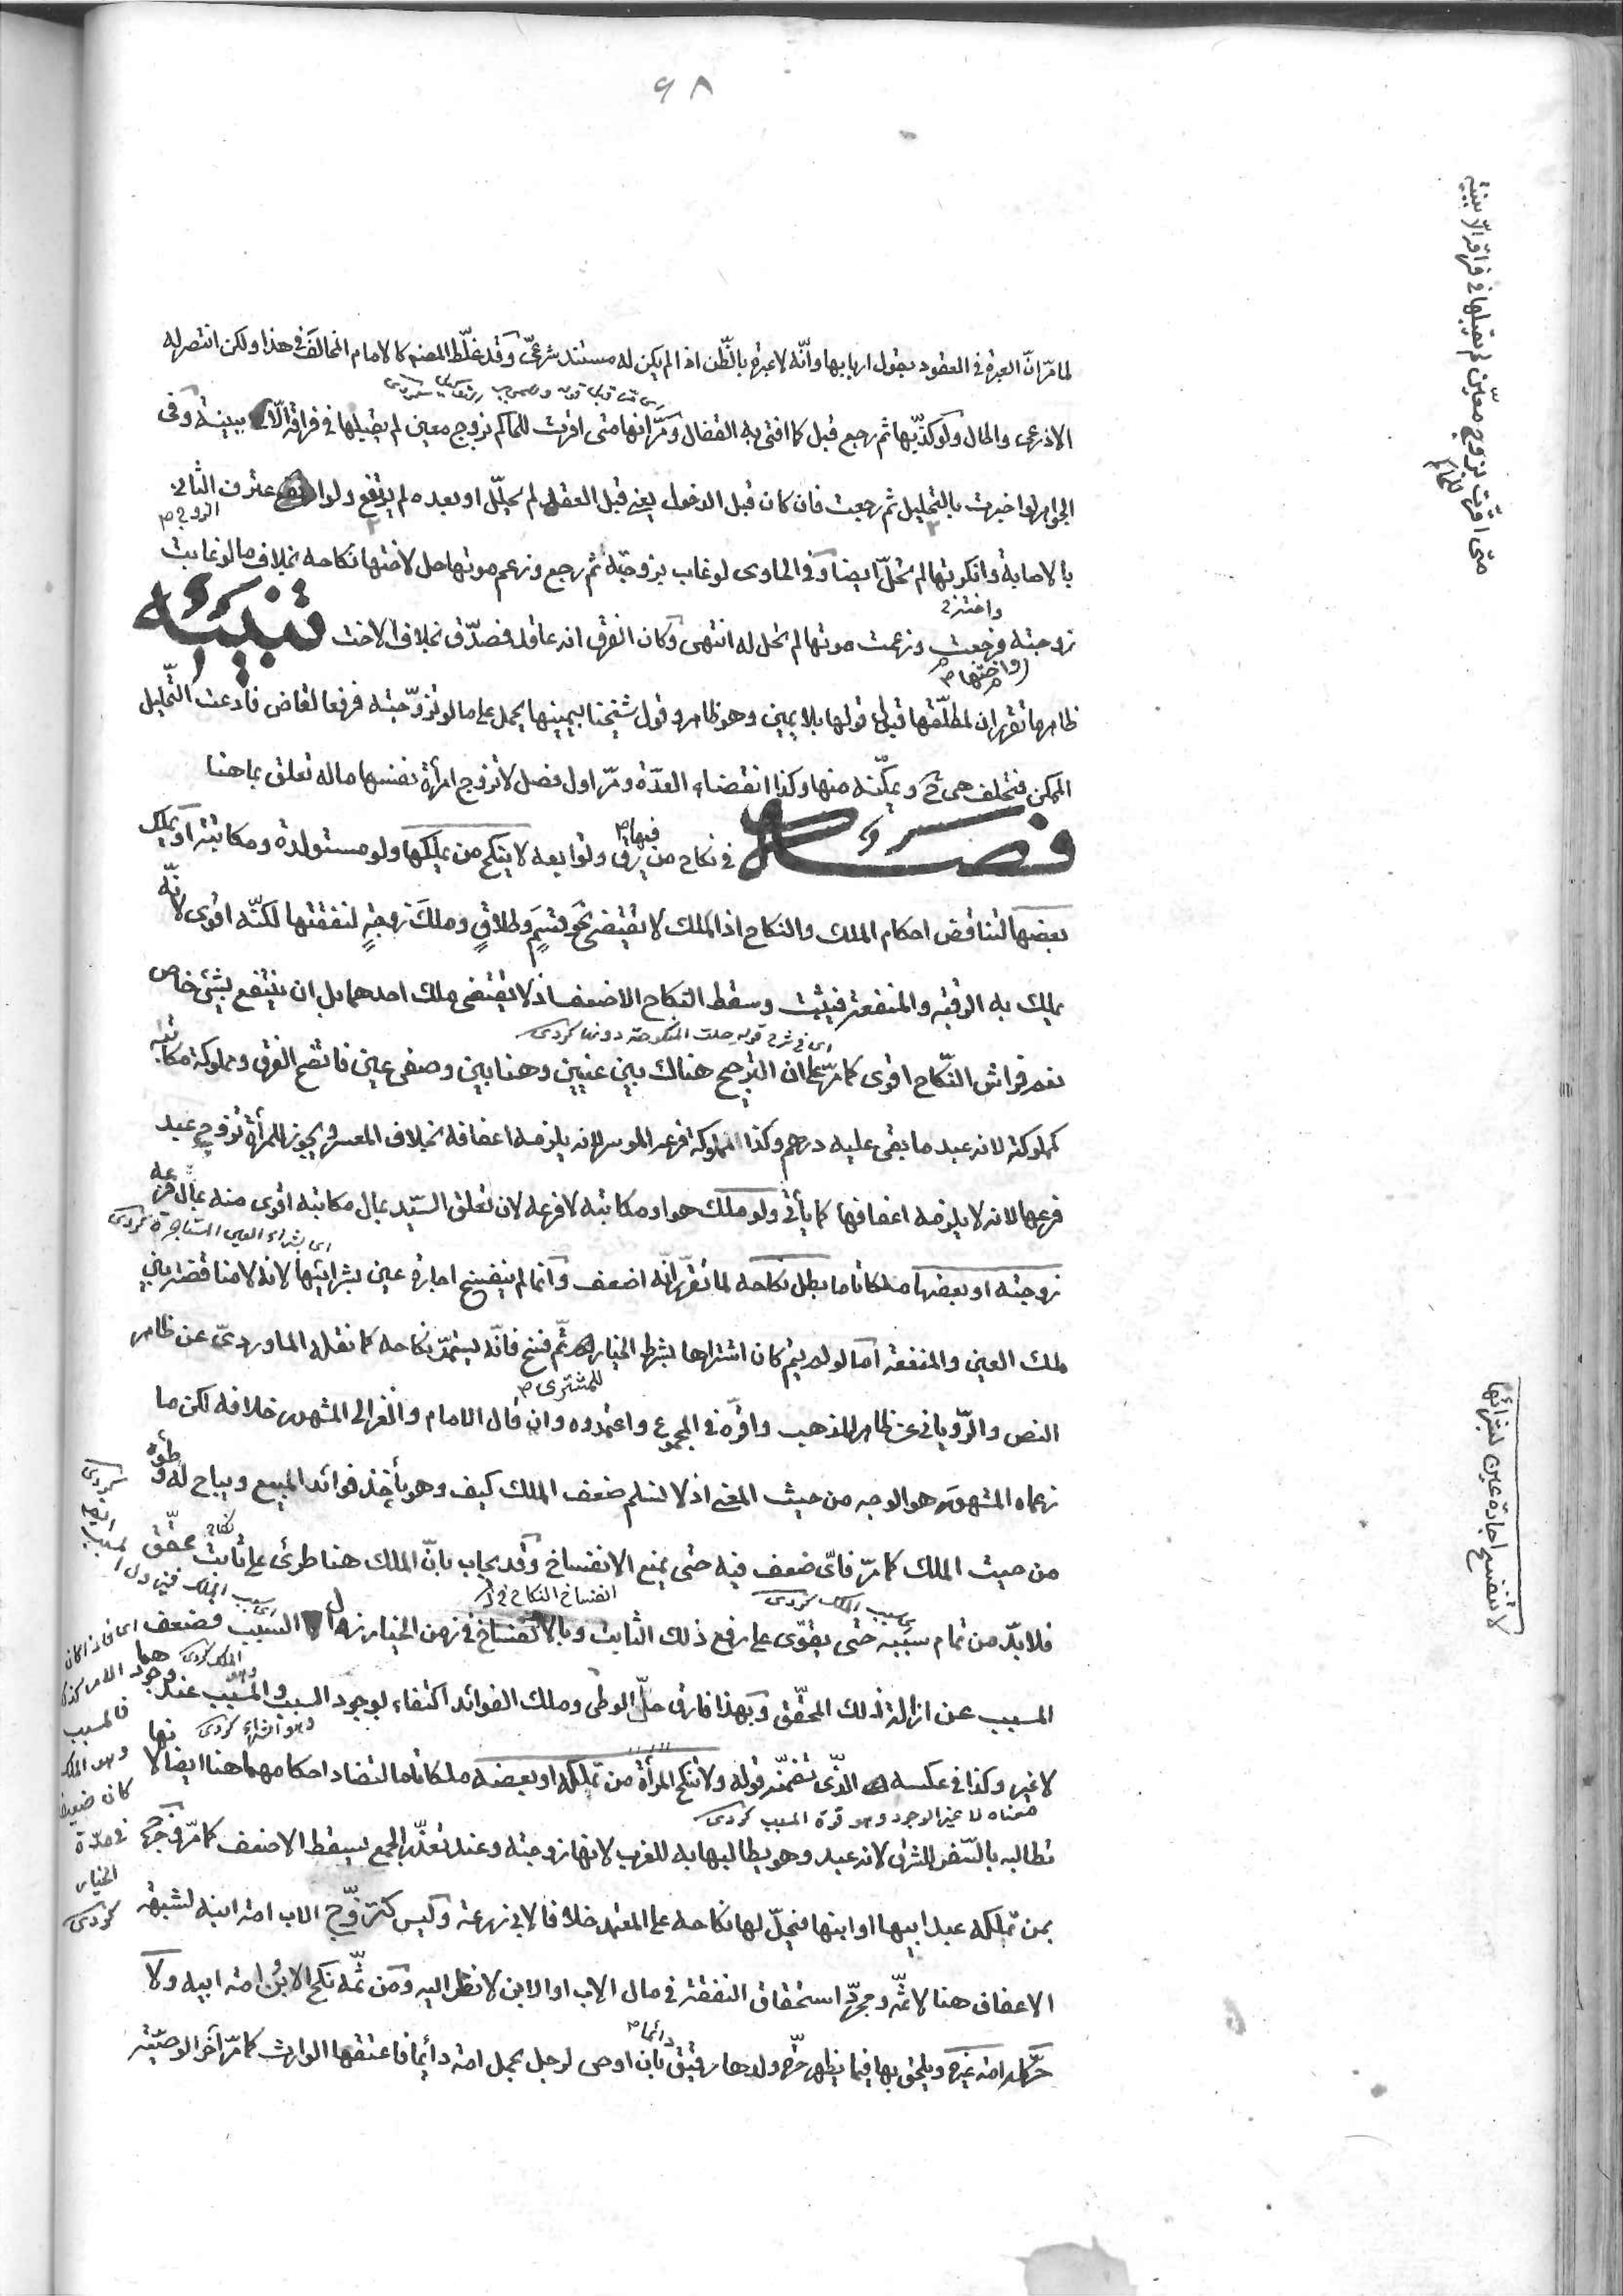 ٩٨
لما مرّ انّ العبرة في العقود بقول اربابها وأنّه لا عبرة بالظّن اذا لم يكن له مستند شرعيّ وقد غلّط المصنف كالامام المخالف في هذا ولكن انتصر له
الاذرعي والحال ولو كذّبها ثم رجع قبل كما افتى به القفال ومرّ انها متى اقرت للحاكم بزوج معين لم يقبلها في فراقه الّا ببينة وفي
الجواهر لو اخبرت بالتحليل ثم رجعت فان كان قبل الدخول يعني قبل العقد لم تحلّ او بعده لم يرتفع ولو اعترف الثاني
الزوج
بالاصابة وانكرتها لم تحلّ ايضا وفي الحاوى لو غاب بزوجته ثم رجع وزعم موتها حل لاختها نكاحه بخلاف ما لو غابت
واختها
زوجته فرجعت وزعمت موتها لم تحل له انتهى وكان الفرق انه عاقد فصدّق بخلاف الاخت تنبيه
ظاهر ما تقرر ان لمطلّقها قبل قولها بلا يمين وهو ظاهر وقول شيخنا بيمينها يحمل على ما لو تزوّجته فرفعا لقاض فادعت التحليل
الممكن فتحلف هى ح ويمكّنه منها وكذا انقضاء العدّة ومرّ اول فصل لا تزوج امرأة نفسها ماله تعلق بما هنا
فصل في نكاح من فيها رق وتوابعه لا ينكح من يملكها ولو مستولدة ومكاتبة او يملك
بعضها لتناقض احكام الملك والنكاح اذ الملك لا يقتضى نحو قسمٍ وطلاقٍ وملك زوجةٍ لنفقتها لكنّه اقوى لانّه
يملك به الرقبة والمنفعة فيثبت وسقط النكاح الاضعف اذ لا يقتضى ملك احدهما بل ان ينتفع بشئ خاص
اى في شرح قوله حلت المنكوحة دونها كردى
نعم فراش النكّاح اقوى كما مرّ على ان الترجيح هناك بين عينين وهنا بين وصفى عين فاتضح الفرق ومملوكة مكاتبه
كمملوكته لانه عبد ما بقى عليه درهم وكذا مملوكة فرعه الموسر لانه يلزمه اعفافه بخلاف المعسر ويجوز للمرأة تزوج عبد
فرعها لانه لا يلزمه اعفافها كما يأتى ولو ملك هو او مكاتبه لا فرعه لان تعلق السيّد بمال مكاتبه اقوى منه بمال فرعه
اى بشراء العين المستأجرة كردى
زوجته او بعضها ملكا تاما بطل نكاحه لما تقرّر انّه اضعف وانما لم ينفسخ اجارة عين بشرائها لانه لا مناقضة بين
ملك العين والمنفعة اما لو لم يتم كان اشتراها بشرط الخيار له ثمّ فسخ فانّه يستمرّ نكاحه كما نقله الماورديّ عن ظاهر
للمشترى
النص والرّويانى عن ظاهر المذهب واقرّه في المجموع واعتمدوه وان قال الامام والغزالى المشهور خلافه لكن ما
زعماه المشهور هو الاوجه من حيث المعنى اذ لا نسلم ضعف الملك كيف وهو يأخذ فوائد المبيع ويباح له وطؤه
من حيث الملك كما مرّ فاىّ ضعف فيه حتى يمنع الانفساخ وقد يجاب بانّ الملك هنا طرئ على ثابت محقّق
بسبب الملك كردى
انفساخ النكاح
فلابدّ من تمام سببه حتى يقوى على رفع ذلك الثابت وبالانفساخ في زمن الخيار زال السبب فضعف
المسبب عن ازالة ذلك المحقّق وبهذا فارق حلّ الوطى وملك الفوائد اكتفاء بوجود السبب والمسبّب عند وجودهما
وهو الشراء كردى
لا غير وكذا في عكسه الذّى تضمّنه قوله ولا تنكح المرأة من تملكه او بعضه ملكا تاما لتضاد احكامهما هنا ايضا لانها
معناه لا غير الوجود وهو قوة المسبب كردى
تطالبه بالسّفر للشرق لانه عبد وهو يطالبها به للغرب لانها زوجته وعند تعذّر الجمع يسقط الاضعف كما مرّ وخرج
بمن تملكه عبد ابيها او ابنها فيحلّ لها نكاحه على المعتمد خلافا لابي زرعة وليس كتزوّج الاب امة ابنه لشبهة
الاعفاف هنا لا ثمّ ومجرّد استحقاق النفقة في مال الاب او الابن لا نظر اليه ومن ثمّ نكح الابن امة ابيه ولا
دائما
حرّ كله امة غيره ويلحق بها فيما يظهر حرّة ولدها رقيق بان اوصى لرجل بحمل امة دائما فاعتقها الوارث كما مرّ آخر الوصيّة
متى اقرّت للحاكم بزوج معيّن لم يقبلها في فراقه الّا ببينة
لا تنفسخ اجارة عين بشرائها
اى فاذا كان
الامر كذلك
فالمسبب
وهو الملك
كان ضعيفا
في مدّة
الخيار
كردى